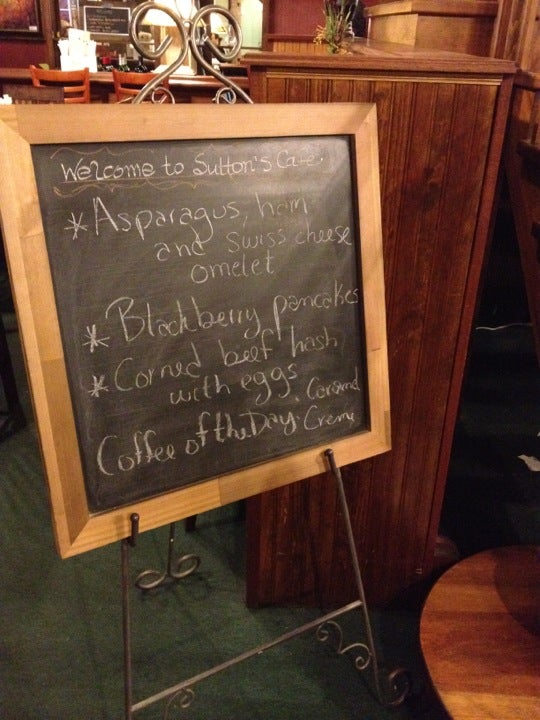 Welcome to Sutton's Cafe.
*Asparagus, ham
and Swiss cheese
omelet
*Blackberry pancakes
*Corned beef hash
with eggs
Coffee of the Day: Caramel
Creme